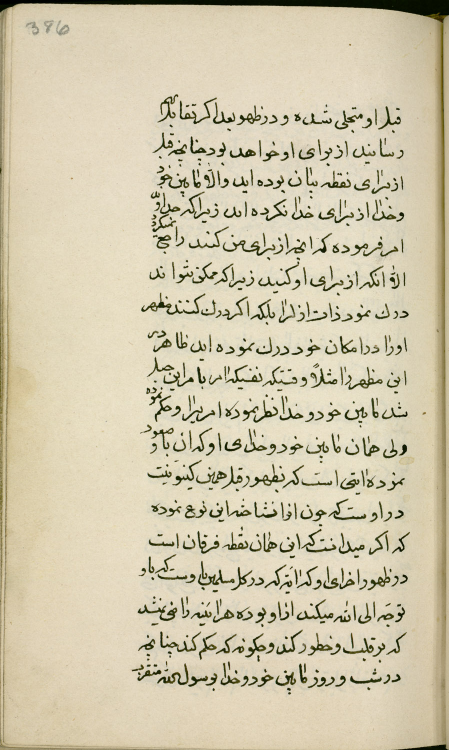 386
قبل او متجلی شده و در ظهور بعد اکر تقابل
رسانید از برای او خواهد بود چنانچه قبل
از برای نقطه بیان بوده اید والا ما بین خود
و خدا از برای خدا نکرده اید زیرا که خداوند
امر فرموده که انچه از برای من کنند راجع
الا انکه از برای او کنید زیرا که ممکن نتواند
درک نمود ذات ازل را بلکه اکر درک کنند مظهر
اورا در امکان خود درک نموده اید ظاهر در
این مظهر را مثلاً وقتیکه نفسیکه امر بامر این
شد ما بین خود و خدا نظر نموده امر را و حکم نموده
ولی همان ما بین خود و خدای او که ان باو صعود
نموده ایتی است که بظهور قبل همین کینونیت
در اوست که چون اورا نشناخته این نوع نموده
که اکر میدانست که این همان نقطه فرقان است
در ظهور اخرای او که ایه که در کل مسلمین باوست که باو
توجه الی الله میکند از او بوده هراینه راضی نمیشد
که بر قلب او خطور کند و چکونه که حکم کند چنانچه
در شب و روز ما بین خود و خدا برسول الله متقرب